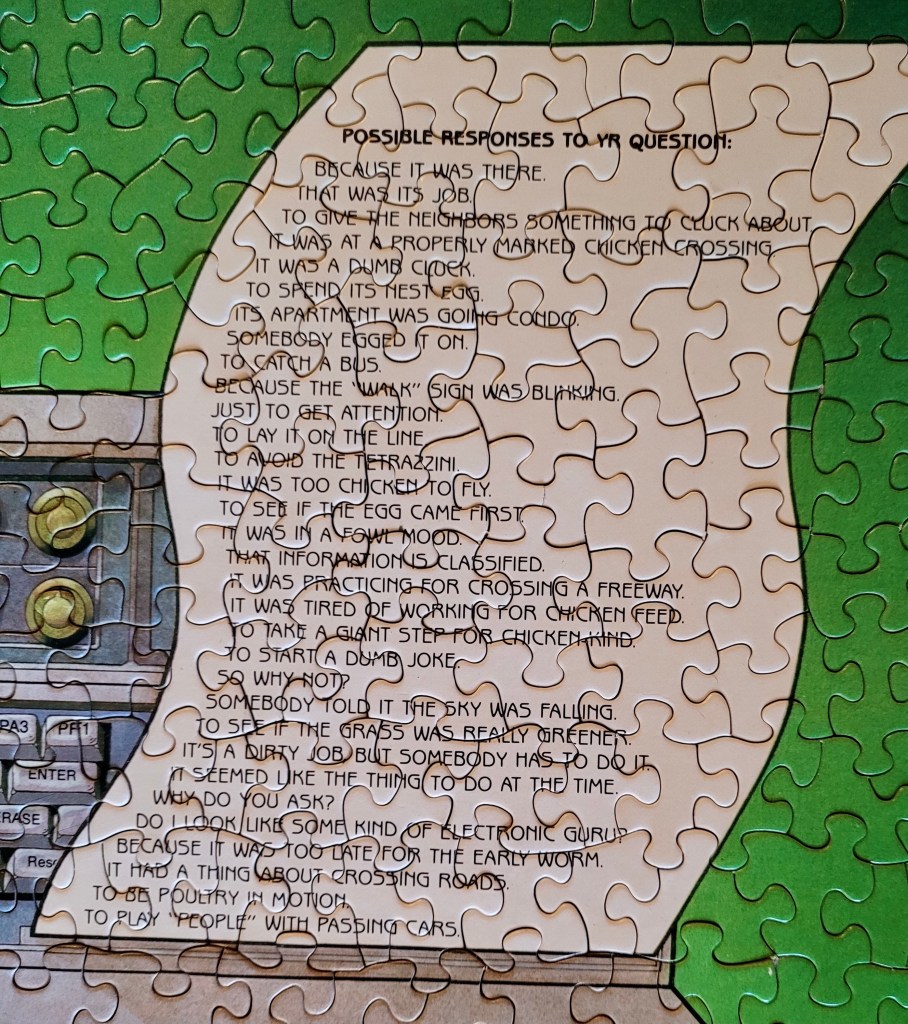 POSSIBLE RESPONSES TO YR QUESTION:
BECAUSE IT WAS THERE.
THAT WAS ITS JOB.
TO GIVE THE NEIGHBORS SOMETHING TO CLUCK ABOUT.
IT WAS AT A PROPERLY MARKED CHICKEN CROSSING.
IT WAS A DUMB CLUCK.
TO SPEND ITS NEST EGG.
ITS APARTMENT WAS GOING CONDO.
SOMEBODY EGGED IT ON.
TO CATCH A BUS.
BECAUSE THE "WALK" SIGN WAS BLINKING.
JUST TO GET ATTENTION.
TO LAY IT ON THE LINE
TO AVOID THE TETRAZZINI.
IT WAS TOO CHICKEN TO FLY.
TO SEE IF THE EGG CAME FIRST.
IT WAS IN A FOWL MOOD.
THAT INFORMATION IS CLASSIFIED.
IT WAS PRACTICING FOR CROSSING A FREEWAY.
IT WAS TIRED OF WORKING FOR CHICKEN FEED.
TO TAKE A GIANT STEP FOR CHICKEN-KIND.
TO START A DUMB JOKE.
SO WHY NOT?
SOMEBODY TOLD IT THE SKY WAS FALLING.
TO SEE IF THE GRASS WAS REALLY GREENER.
IT'S A DIRTY JOB BUT SOMEBODY HAS TO DO IT.
IT SEEMED LIKE THE THING TO DO AT THE TIME.
WHY DO YOU ASK?
DO I LOOK LIKE SOME KIND OF ELECTRONIC GURU?
BECAUSE IT WAS TOO LATE FOR THE EARLY WORM.
IT HAD A THING ABOUT CROSSING ROADS.
TO BE POULTRY IN MOTION.
TO PLAY "PEOPLE" WITH PASSING CARS.
PA3 PF1
ENTER
ERASE
Res